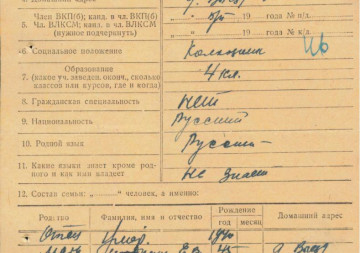 Член ВКП(б); канд. в чл. ВКП(б)
5. Чл. ВЛКСМ; канд. в чл. ВЛКСМ
(нужное подчеркнуть)
б/п 19 года № п/д.
19 года № к/д.
6. Социальное положение
Колхозник
Образование
7. (какое уч. заведен. оконч., сколько
классов или курсов, где и когда)
4 кл.
8. Гражданская специальность
нет
9. Национальность
Русский
10. Родной язык
Русский
11. Какие языки знает кроме род-
ного и как ими владеет
Не знает
12. Состав семьи: „ “ человек, а именно:
Родство
Фамилия, имя и отчество
Рождение
год месяц
Домашний адрес
Отец умер. 1940
Мать